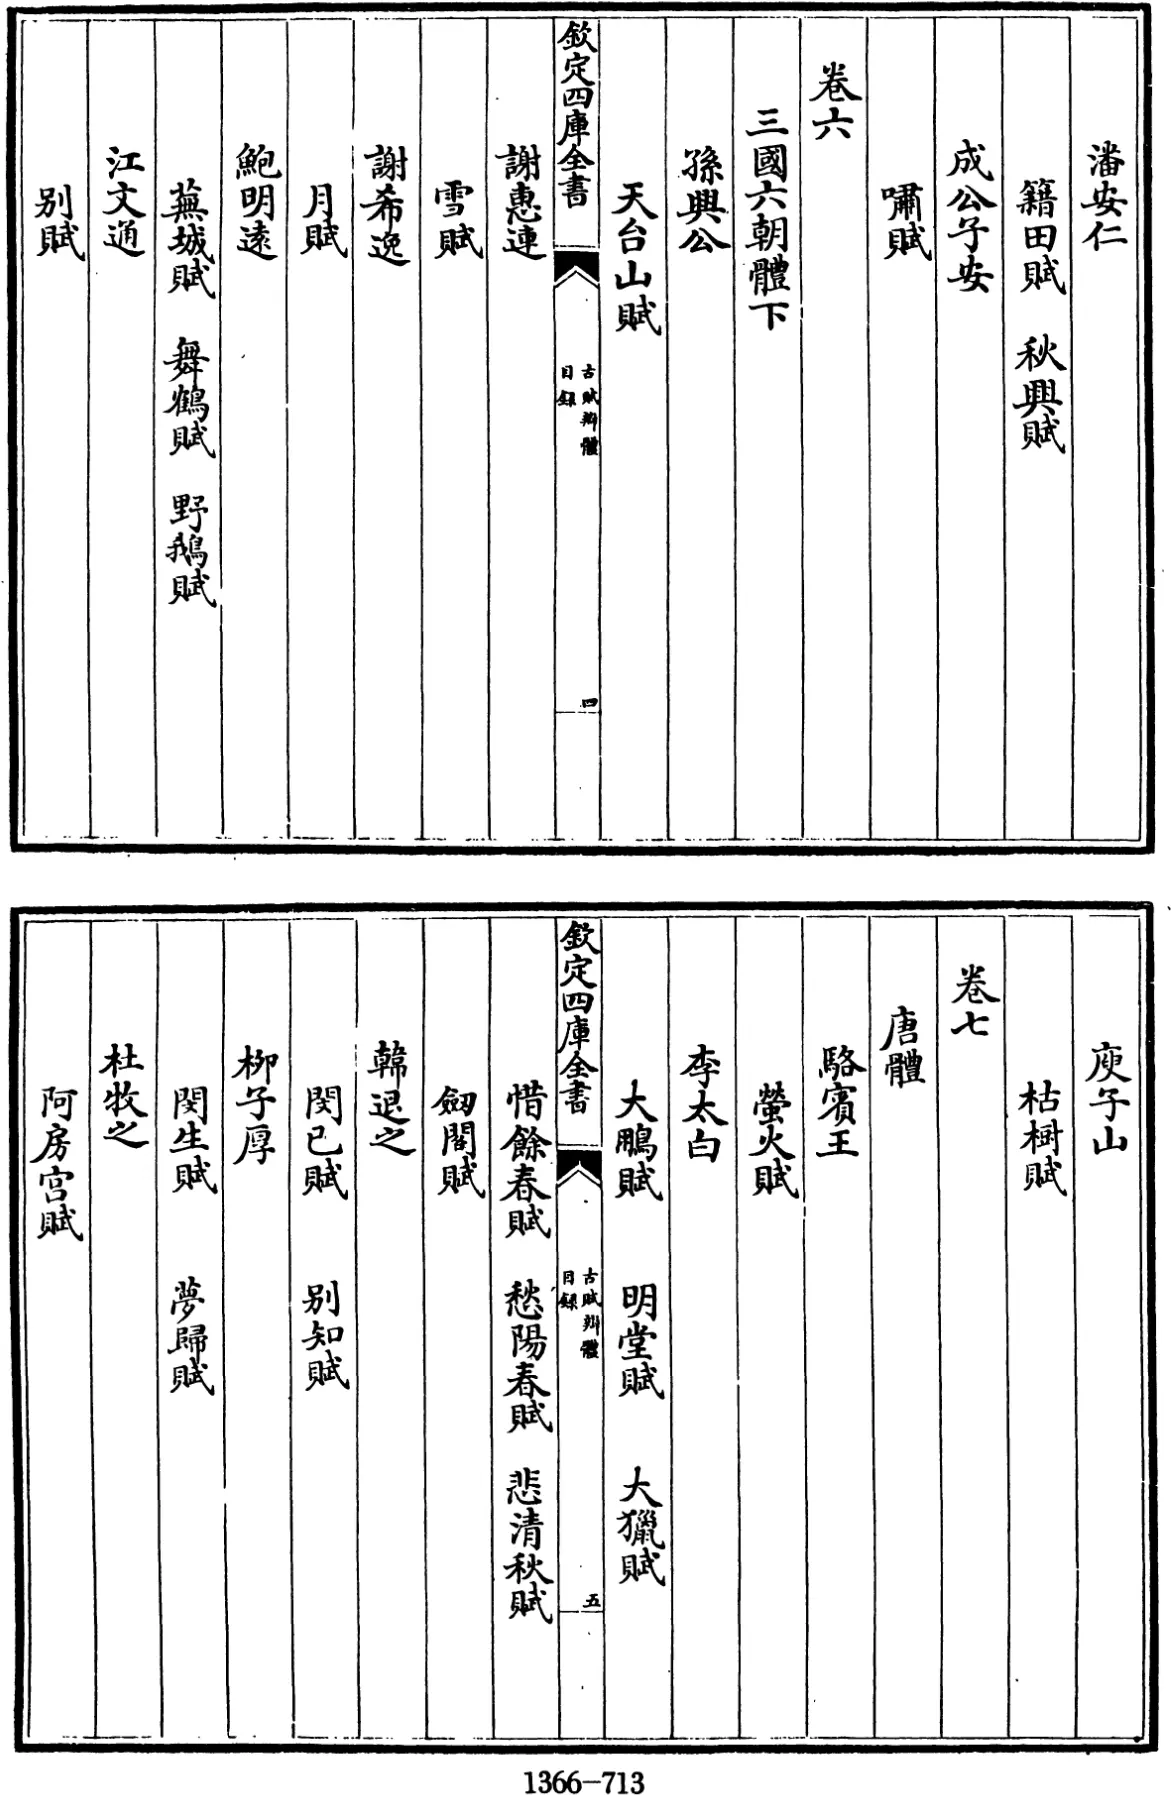 潘安仁
籍田賦　秋興賦
成公子安
嘯賦
卷六
三國六朝體下
孫興公
天台山賦
欽定四庫全書
古賦辯體
目錄
四
謝惠連
雪賦
謝希逸
月賦
鮑明遠
蕪城賦　舞鶴賦　野鵝賦
江文通
别賦
庾子山
枯樹賦
卷七
唐體
駱賓王
螢火賦
李太白
大鵬賦　明堂賦　大獵賦
欽定四庫全書
古賦辯體
目錄
五
惜餘春賦　愁陽春賦　悲清秋賦
劒閣賦
韓退之
閔己賦　别知賦
柳子厚
閔生賦　夢歸賦
杜牧之
阿房宮賦
1366-713